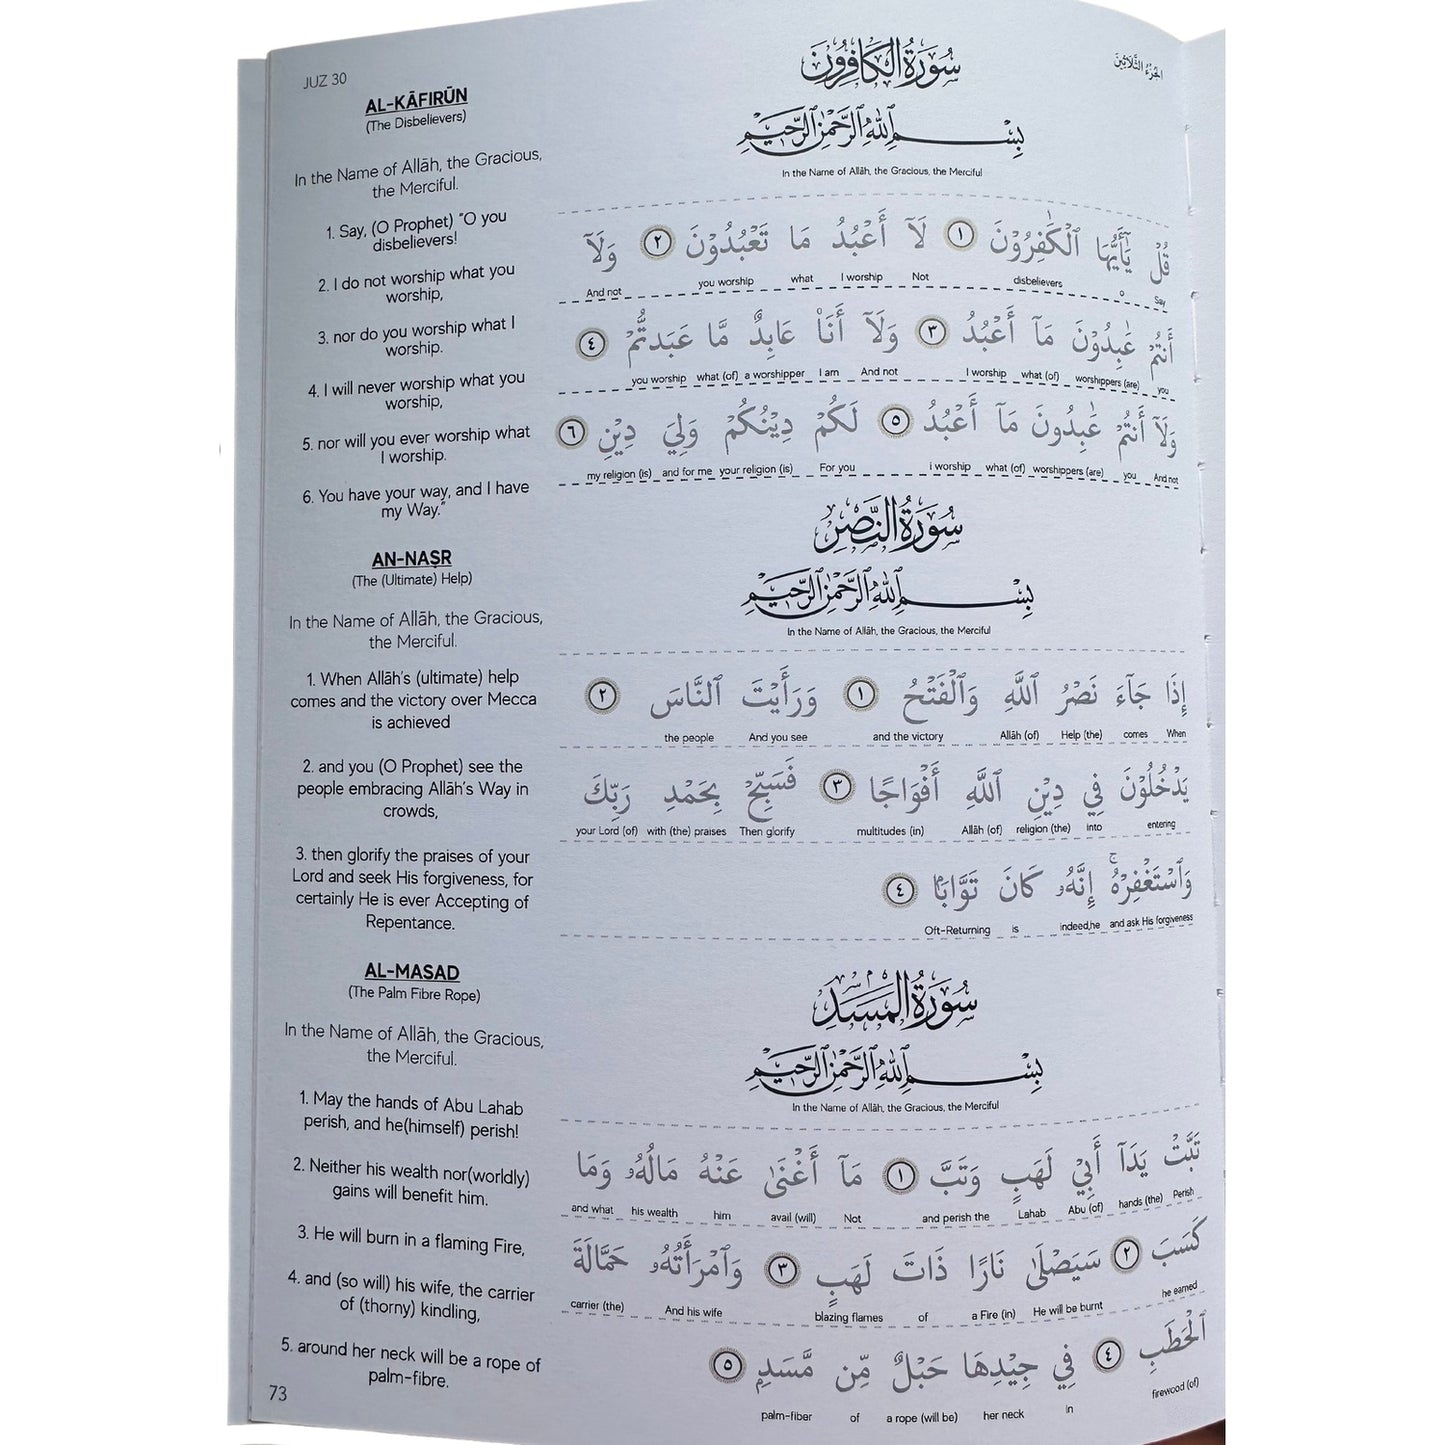 JUZ 30
AL-KĀFIRŪN
(The Disbelievers)
In the Name of Allāh, the Gracious,
the Merciful.
1. Say, (O Prophet) "O you
disbelievers!
2. I do not worship what you
worship,
3. nor do you worship what I
worship.
4. I will never worship what you
worship,
5. nor will you ever worship what
I worship.
6. You have your way, and I have
my Way."
AN-NAṢR
(The (Ultimate) Help)
In the Name of Allāh, the Gracious,
the Merciful.
1. When Allāh's (ultimate) help
comes and the victory over Mecca
is achieved
2. and you (O Prophet) see the
people embracing Allāh's Way in
crowds,
3. then glorify the praises of your
Lord and seek His forgiveness, for
certainly He is ever Accepting of
Repentance.
AL-MASAD
(The Palm Fibre Rope)
In the Name of Allāh, the Gracious,
the Merciful.
1. May the hands of Abu Lahab
perish, and he(himself) perish!
2. Neither his wealth nor(worldly)
gains will benefit him.
3. He will burn in a flaming Fire,
4. and (so will) his wife, the carrier
of (thorny) kindling,
5. around her neck will be a rope of
palm-fibre.
73
الجُزْءُ الثَّلَاثِينَ
سُورَةُ الْكَافِرُونَ
بِسْمِ ٱللَّهِ ٱلرَّحْمَٰنِ ٱلرَّحِيمِ
In the Name of Allāh, the Gracious, the Merciful
قُلْ يَٰٓأَيُّهَا ٱلْكَٰفِرُوْنَ ١ لَآ أَعْبُدُ مَا تَعْبُدُوْنَ ٢ وَلَآ
And not you worship what I worship Not disbelievers O Say
أَنتُمْ عَٰبِدُوْنَ مَآ أَعْبُدُ ٣ وَلَآ أَنَا۠ عَابِدٌ مَّا عَبَدتُّمْ ٤
you worship what (of) a worshipper I am And not I worship what (of) worshippers (are) you
وَلَآ أَنتُمْ عَٰبِدُونَ مَآ أَعْبُدُ ٥ لَكُمْ دِيْنُكُمْ وَلِيَ دِيْنِ ٦
my religion (is) and for me your religion (is) For you i worship what (of) worshippers (are) you And not
سُورَةُ النَّصْرِ
بِسْمِ ٱللَّهِ ٱلرَّحْمَٰنِ ٱلرَّحِيمِ
In the Name of Allāh, the Gracious, the Merciful
إِذَا جَآءَ نَصْرُ ٱللَّهِ وَٱلْفَتْحُ ١ وَرَأَيْتَ ٱلنَّاسَ ٢
the people And you see and the victory Allāh (of) Help (the) comes When
يَدْخُلُوْنَ فِي دِيْنِ ٱللَّهِ أَفْوَاجًا ٣ فَسَبِّحْ بِحَمْدِ رَبِّكَ
your Lord (of) with (the) praises Then glorify multitudes (in) Allāh (of) religion (the) into entering
وَٱسْتَغْفِرْهُ ۚ إِنَّهُۥ كَانَ تَوَّابًۢا ٤
Oft-Returning is indeed,he and ask His forgiveness
سُورَةُ الْمَسَدِ
بِسْمِ ٱللَّهِ ٱلرَّحْمَٰنِ ٱلرَّحِيمِ
In the Name of Allāh, the Gracious, the Merciful
تَبَّتْ يَدَآ أَبِيْ لَهَبٍ وَتَبَّ ١ مَآ أَغْنَىٰ عَنْهُ مَالُهُۥ وَمَا
and what his wealth him avail (will) Not and perish the Lahab Abu (of) hands (the) Perish
كَسَبَ ٢ سَيَصْلَىٰ نَارًا ذَاتَ لَهَبٍ ٣ وَٱمْرَأَتُهُۥ حَمَّالَةَ
carrier (the) And his wife blazing flames of a Fire (in) He will be burnt he earned
ٱلْحَطَبِ ٤ فِي جِيْدِهَا حَبْلٌ مِّن مَّسَدٍۭ ٥
palm-fiber of a rope (will be) her neck in firewood (of)